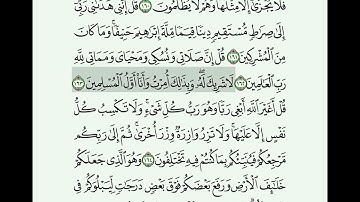 فَلَا يُجْزَىٰٓ إِلَّا مِثْلَهَا وَهُمْ لَا يُظْلَمُونَ ١٦٠ قُلْ إِنَّنِى هَدَىٰنِى رَبِّىٓ
إِلَىٰ صِرَٰطٍ مُّسْتَقِيمٍ دِينًا قِيَمًا مِّلَّةَ إِبْرَٰهِيمَ حَنِيفًا ۚ وَمَا كَانَ
مِنَ ٱلْمُشْرِكِينَ ١٦١ قُلْ إِنَّ صَلَاتِى وَنُسُكِى وَمَحْيَاىَ وَمَمَاتِى لِلَّهِ
رَبِّ ٱلْعَٰلَمِينَ ١٦٢ لَا شَرِيكَ لَهُۥ ۖ وَبِذَٰلِكَ أُمِرْتُ وَأَنَا۠ أَوَّلُ ٱلْمُسْلِمِينَ ١٦٣
قُلْ أَغَيْرَ ٱللَّهِ أَبْغِى رَبًّا وَهُوَ رَبُّ كُلِّ شَىْءٍ ۚ وَلَا تَكْسِبُ كُلُّ
نَفْسٍ إِلَّا عَلَيْهَا ۚ وَلَا تَزِرُ وَازِرَةٌ وِزْرَ أُخْرَىٰ ۚ ثُمَّ إِلَىٰ رَبِّكُم
مَّرْجِعُكُمْ فَيُنَبِّئُكُم بِمَا كُنتُمْ فِيهِ تَخْتَلِفُونَ ١٦٤ وَهُوَ ٱلَّذِى جَعَلَكُمْ
خَلَٰٓئِفَ ٱلْأَرْضِ وَرَفَعَ بَعْضَكُمْ فَوْقَ بَعْضٍ دَرَجَٰتٍ لِّيَبْلُوَكُمْ فِى